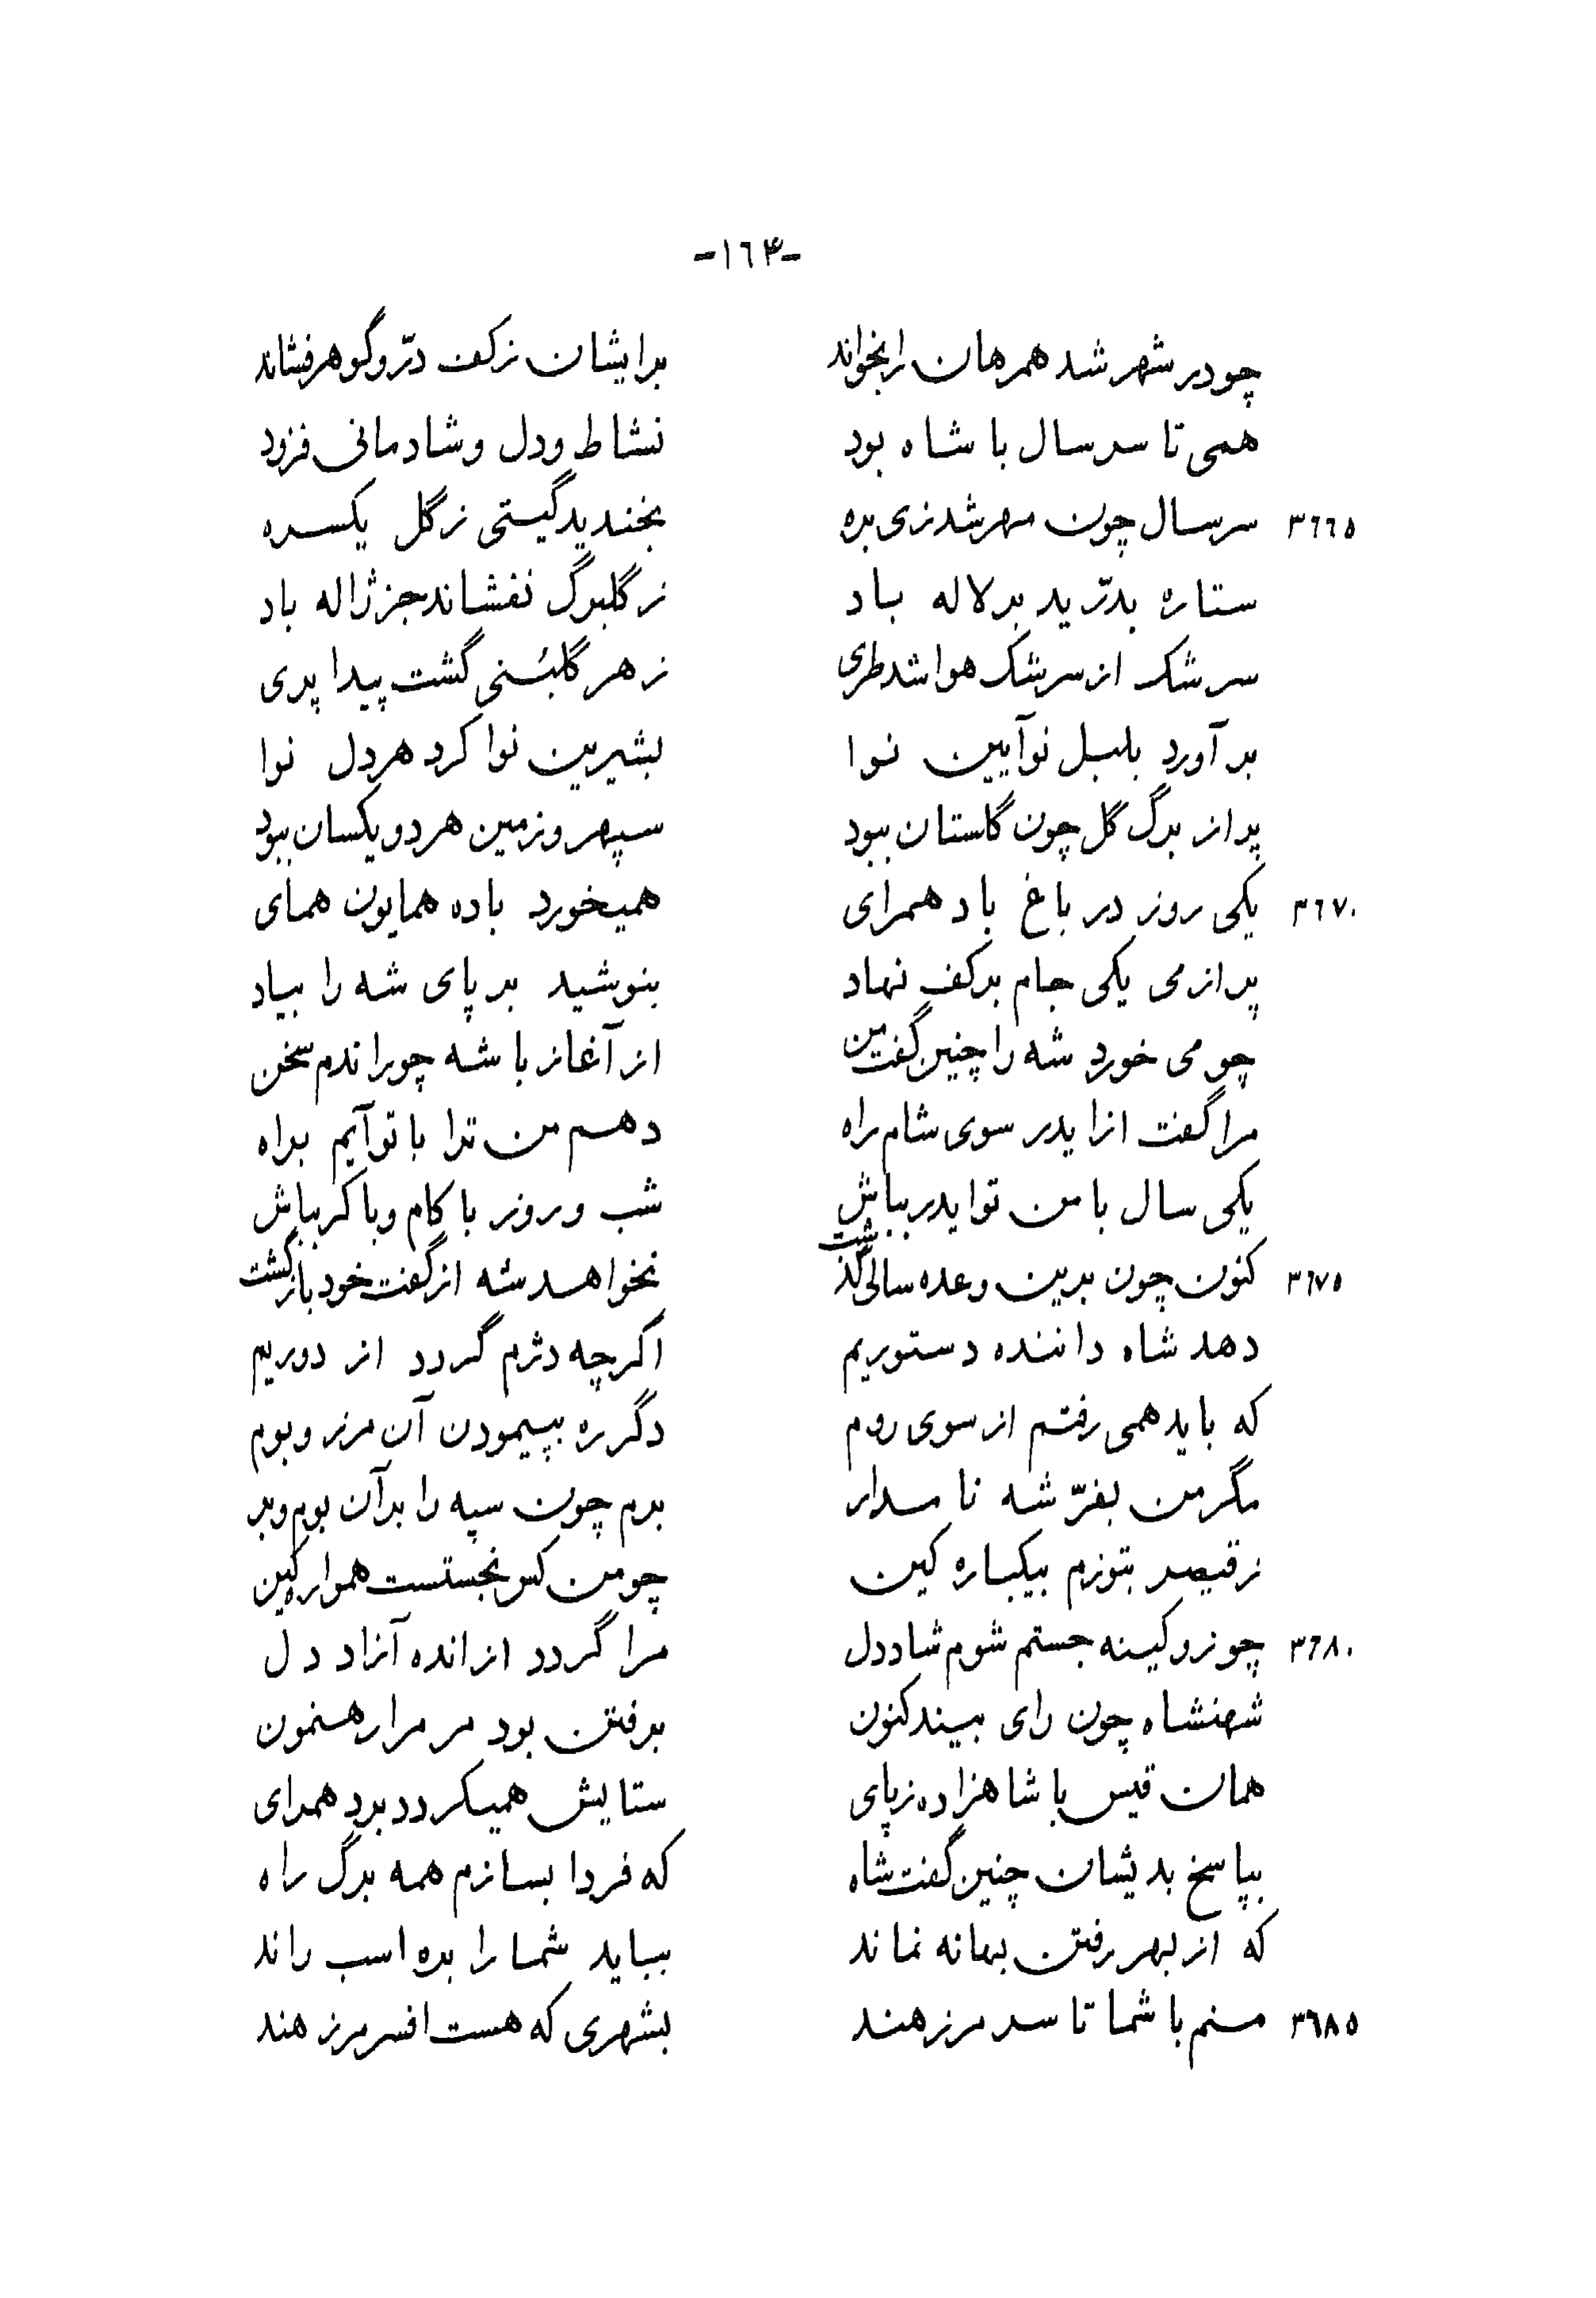 -١٦٣-
چو در شهر شد همرهان را بخواند    بر ایشان ز کف درّ و گوهر فشاند
همی تا سر سال با شاه بود    نشاط و دل و شادمانی فزود
٣٦٦٥ سر سال چون مهر شد زی بره    بخندید گیتی ز گل یکسره
ستاره بدرّید بر لاله باد    ز گلبرگ نفشاند جز ژاله باد
سرشک از سرشک هوا شد طری    ز هر گلبُنی گشت پیدا پری
بر آورد بلبل نوآیین نوا    بشیرین نوا کرد هر دل نوا
پر از برگ گل چون گلستان ببود    سپهر و زمین هر دو یکسان ببود
٣٦٧٠ یکی روز در باغ باد همرای    همیخورد باده همایون همای
پر از می یکی جام بر کف نهاد    بنوشید بر پای شه را بیاد
چو می خورد شه را چنین گفت من    از آغاز با شه چو راندم سخن
مرا گفت از ایدر سوی شام راه    دهم من ترا با تو آیم براه
یکی سال با من تو ایدر بباش    شب و روز با کام و با کر بباش
٣٦٧٥ کنون چون برین وعده سالی گذشت    نخواهد شه از گفت خود بازگشت
دهد شاه داننده دستوریم    اگرچه دژم گردد از دوریم
که باید همی رفتم از سوی روم    دگر ره بپیمودن آن مرز و بوم
مگر من بفرّ شه نامدار    برم چون سپه را بر آن بوم و بر
ز قیصر بتوزم بیکباره کین    چو من کس نجستست همواره کین
٣٦٨٠ چو زو کینه جستم شوم شاد دل    مرا گردد از انده آزاد دل
شهنشاه چون رای بیند کنون    برفتن بود مر مرا رهنمون
همان قیس با شاهزاده ز پای    ستایش همیکرد بر دهمرای
بپاسخ بدیشان چنین گفت شاه    که فردا بسازم همه برگ راه
که از بهر رفتن بهانه نماند    بباید شما را بره اسب راند
٣٦٨٥ منم با شما تا سر مرز هند    بشهری که هست افسر مرز هند